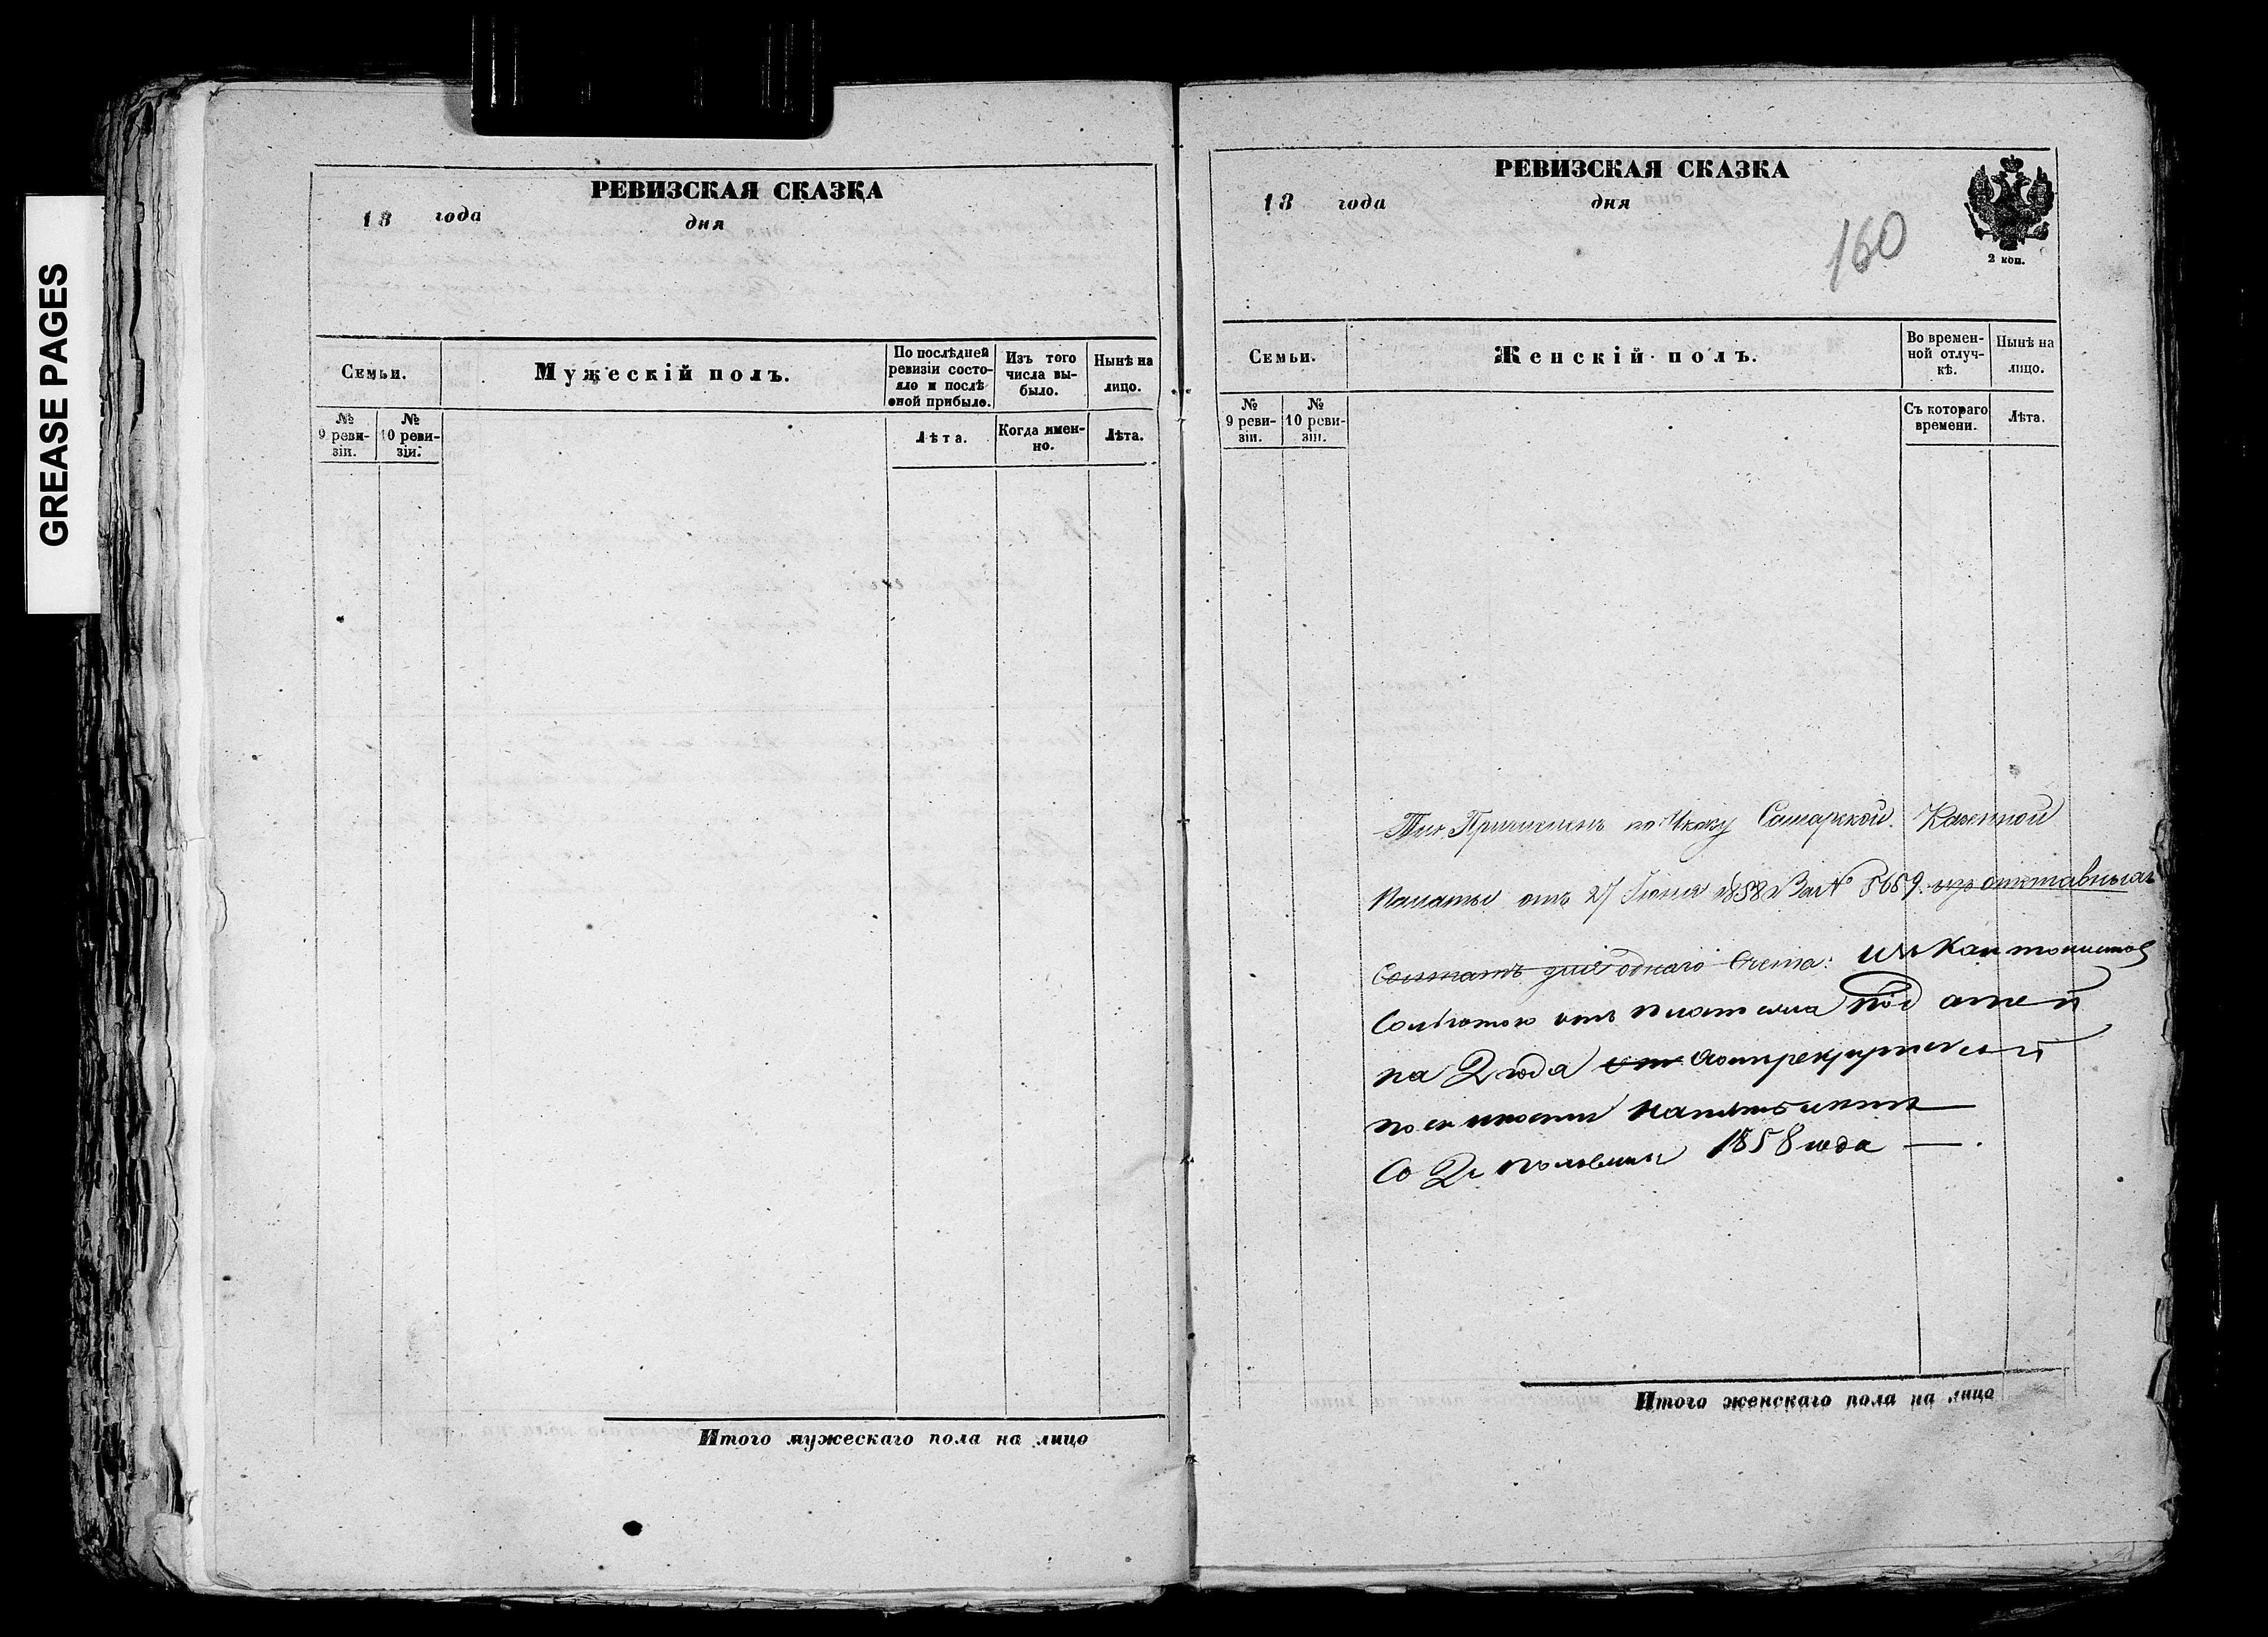 GREASE PAGES
РЕВИЗСКАЯ СКАЗКА
18 года дня
Семьи.
Мужескій полъ.
По послѣдней
ревизіи состо-
яло и послѣ
оной прибыло.
Изъ того
числа вы-
было.
Нынѣ на
лицо.
№
9 реви-
зіи.
№
10 реви-
зіи.
Лѣта.
Когда имен-
но.
Лѣта.
Итого мужескаго пола на лицо
РЕВИЗСКАЯ СКАЗКА
18 года дня
160
2 коп.
Семьи.
Женскій полъ.
Во времен-
ной отлуч-
кѣ.
Нынѣ на
лицо.
№
9 реви-
зіи.
№
10 реви-
зіи.
Съ котораго
времени.
Лѣта.
Причисленъ по Указу Самарской Казенной
Палаты отъ 27 Іюня 1858 За № 5659 изъ отставныхъ
Солдатъ для одного счета: изъ Кантонистов
съ льготою отъ платежа податей
на 2 года от рекрутской
повинности
Со 2й половины 1858 года
Итого женскаго пола на лицо